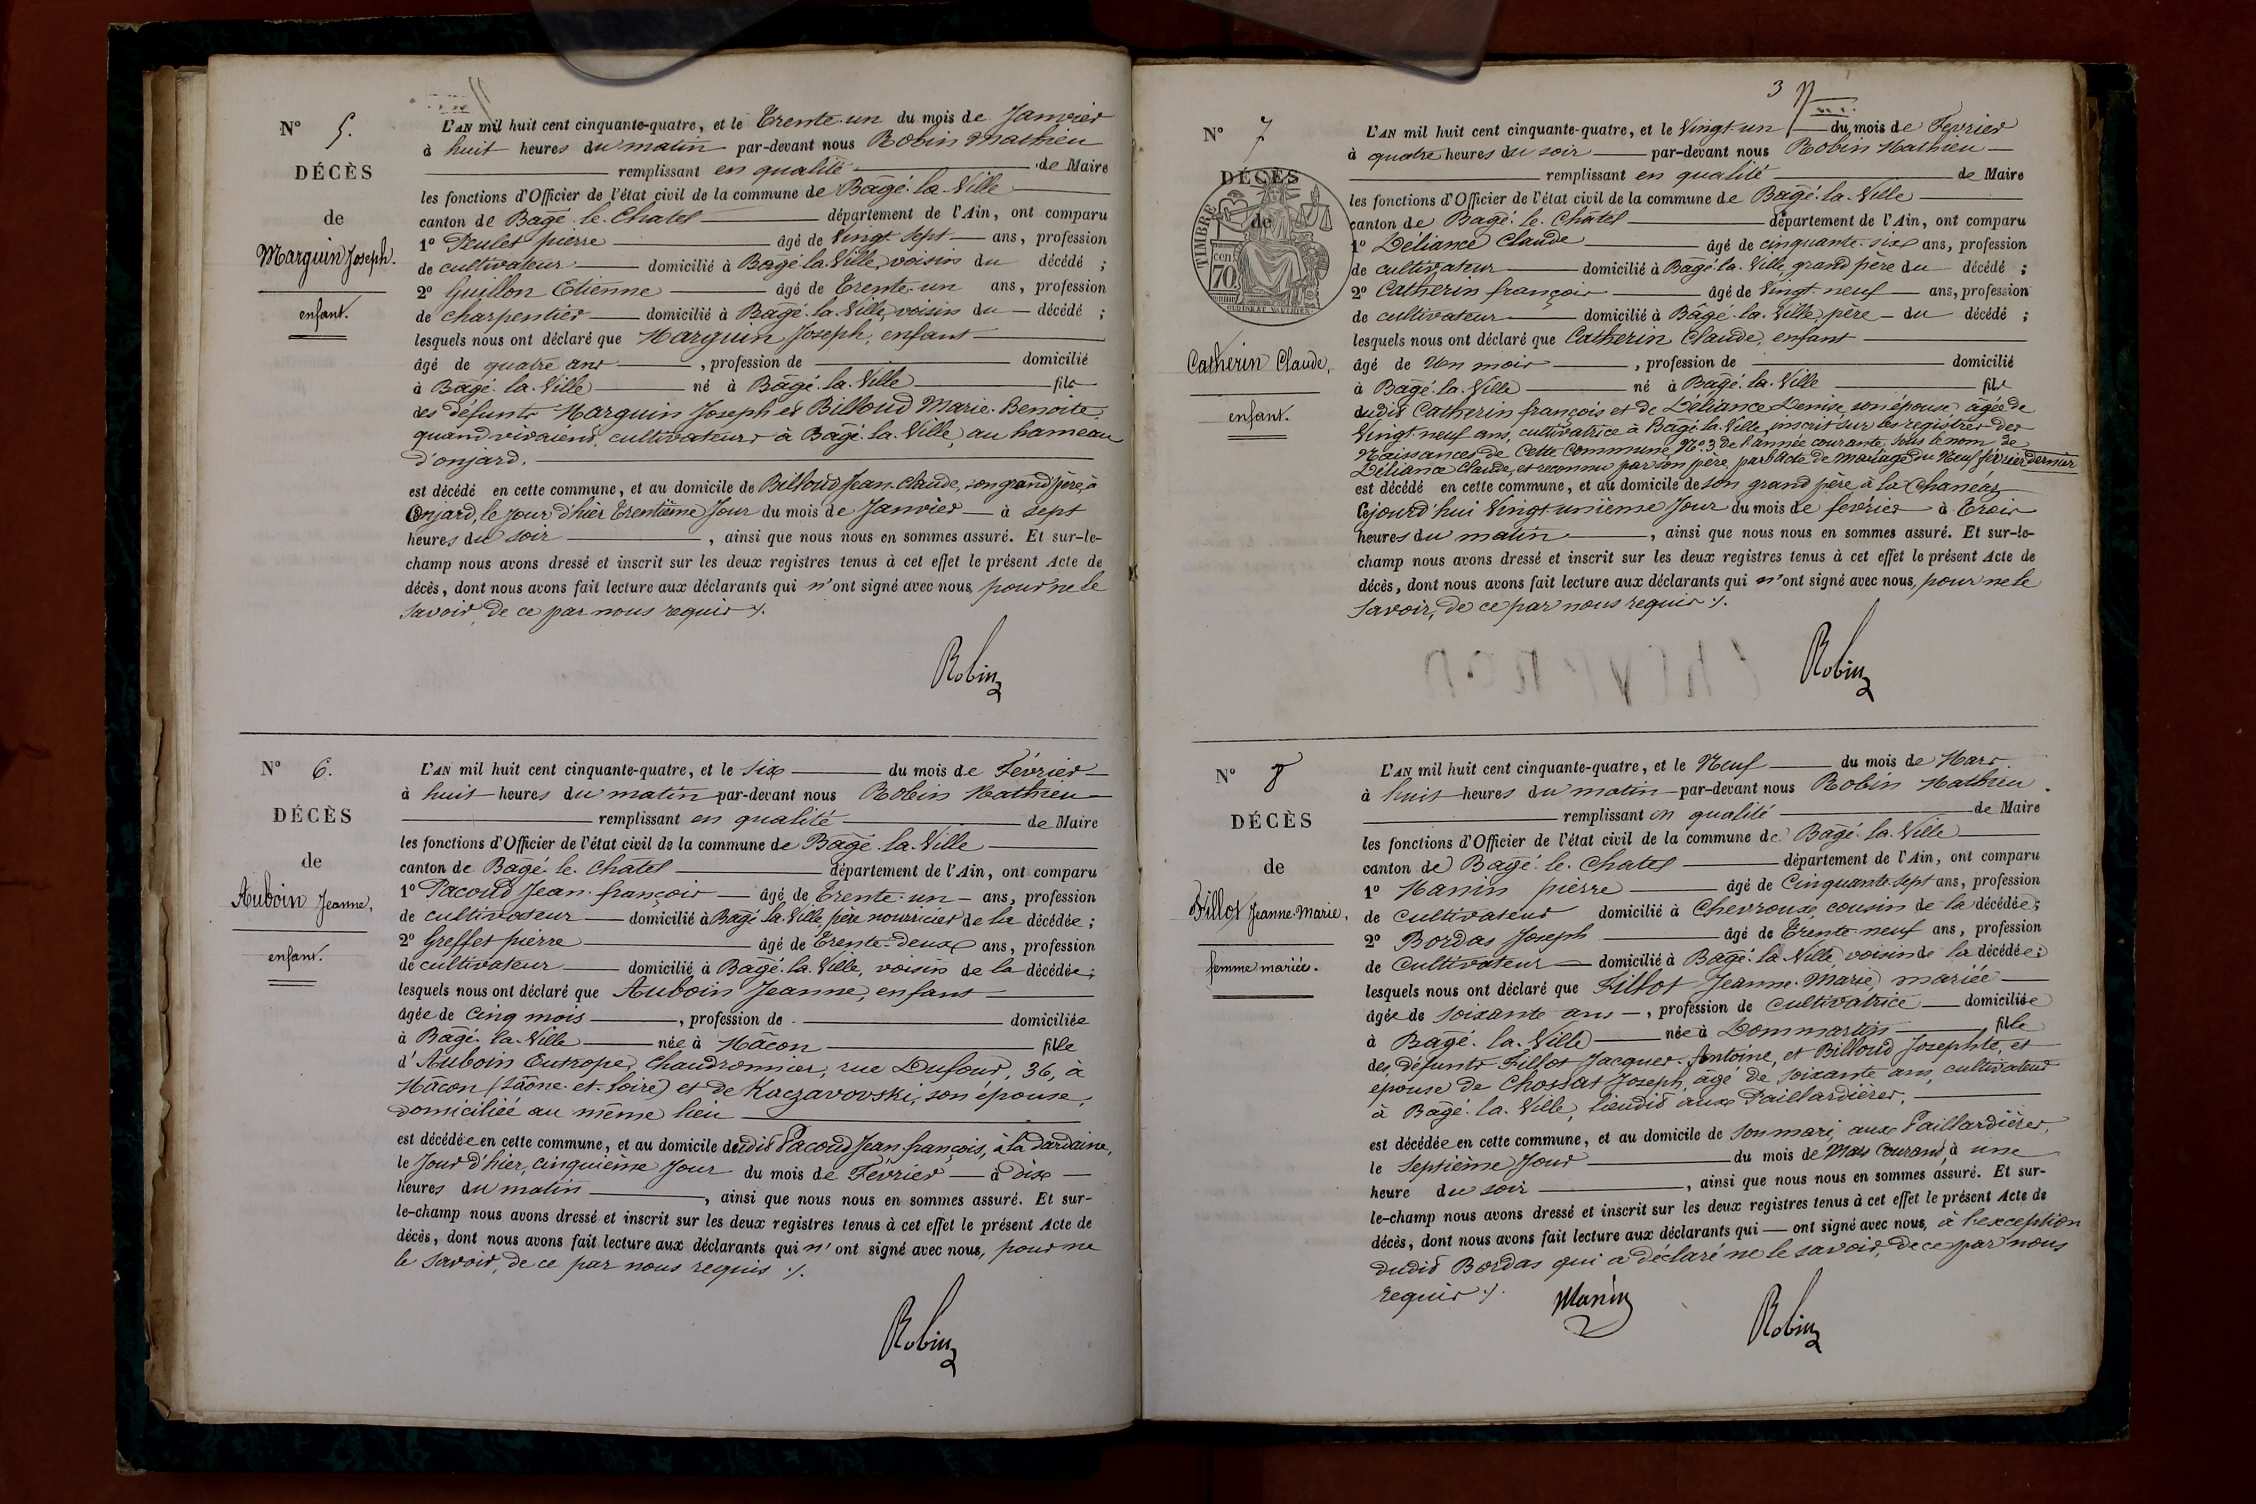 N° 5.
DÉCÈS
de
Marguin Joseph.
enfant.
L'AN mil huit cent cinquante-quatre, et le Trente-un du mois de Janvier
à huit heures du matin par-devant nous Robin Mathieu
remplissant en qualité de Maire
les fonctions d'Officier de l'état civil de la commune de Bâgé-la-Ville
canton de Bâgé-le-Chatel département de l'Ain, ont comparu
1° Peulet pierre âgé de Vingt-sept ans, profession
de cultivateur domicilié à Bâgé-la-Ville, voisin du décédé ;
2° Guillon Etienne âgé de Trente-un ans, profession
de charpentier domicilié à Bâgé-la-Ville, voisin du décédé ;
lesquels nous ont déclaré que Marguin Joseph, enfant
âgé de quatre ans, profession de domicilié
à Bâgé-la-Ville né à Bâgé-la-Ville fils
des défunts Marguin Joseph et Billoud Marie-Benoite,
quand vivaient, cultivateurs à Bâgé-la-Ville, au hameau
d'onjard.
est décédé en cette commune, et au domicile de Billoud Jean-Claude, son grand père, à
Onjard, le jour d'hier Trentième Jour du mois de Janvier à sept
heures du soir, ainsi que nous nous en sommes assuré. Et sur-le-
champ nous avons dressé et inscrit sur les deux registres tenus à cet effet le présent Acte de
décès, dont nous avons fait lecture aux déclarants qui n'ont signé avec nous, pour ne le
savoir, de ce par nous requis ./.
Robin
N° 6.
DÉCÈS
de
Auboin Jeanne,
enfant.
L'AN mil huit cent cinquante-quatre, et le six du mois de Février
à huit heures du matin par-devant nous Robin Mathieu
remplissant en qualité de Maire
les fonctions d'Officier de l'état civil de la commune de Bâgé-la-Ville
canton de Bâgé-le-Châtel département de l'Ain, ont comparu
1° Pacoud Jean-françois âgé de Trente-un ans, profession
de cultivateur domicilié à Bâgé-la-Ville, père nourricier de la décédée ;
2° Greffet pierre âgé de Trente-deux ans, profession
de cultivateur domicilié à Bâgé-la-Ville, voisin de la décédée ;
lesquels nous ont déclaré que Auboin Jeanne, enfant
âgée de Cinq mois, profession de domiciliée
à Bâgé-la-Ville née à Mâcon fille
d'Auboin Eutrope, Chaudronnier, rue Dufour, 36, à
Mâcon (Saône-et-Loire) et de Kaczavovski, son épouse,
domiciliée au même lieu
est décédée en cette commune, et au domicile dudit Pacoud Jean françois, à la Dardaine,
le Jour d'hier, cinquième Jour du mois de Février à dix
heures du matin, ainsi que nous nous en sommes assuré. Et sur-
le-champ nous avons dressé et inscrit sur les deux registres tenus à cet effet le présent Acte de
décès, dont nous avons fait lecture aux déclarants qui n'ont signé avec nous, pour ne
le savoir, de ce par nous requis ./.
Robin
3
N° 7
DÉCÈS
de
TIMBRE
70 cent
Catherin Claude,
enfant.
L'AN mil huit cent cinquante-quatre, et le Vingt-un du mois de Fevrier
à quatre heures du soir par-devant nous Robin Mathieu
remplissant en qualité de Maire
les fonctions d'Officier de l'état civil de la commune de Bâgé-la-Ville
canton de Bâgé-le-Châtel département de l'Ain, ont comparu
1° Déliance Claude âgé de cinquante-six ans, profession
de cultivateur domicilié à Bâgé-la-Ville, grand père du décédé ;
2° Catherin françois âgé de Vingt-neuf ans, profession
de cultivateur domicilié à Bâgé-la-Ville, père du décédé ;
lesquels nous ont déclaré que Catherin Claude, enfant
âgé de Un mois, profession de domicilié
à Bâgé-la-Ville né à Bâgé-la-Ville fils
dudit Catherin françois et de Déliance Denise, son épouse, âgée de
Vingt neuf ans, cultivatrice à Bâgé-la-Ville, inscrit sur les registres des
Naissances de cette Commune N° 3 de l'année courante, sous le nom de
Déliance Claude, et reconnu par son père, par l'Acte de Mariage du Neuf février dernier
est décédé en cette commune, et au domicile de son grand père à la Chaneas
Cejourd'hui Vingt unième Jour du mois de février à Trois
heures du matin, ainsi que nous nous en sommes assuré. Et sur-le-
champ nous avons dressé et inscrit sur les deux registres tenus à cet effet le présent Acte de
décès, dont nous avons fait lecture aux déclarants qui n'ont signé avec nous, pour ne le
savoir, de ce par nous requis ./.
Robin
N° 8
DÉCÈS
de
Fillot Jeanne-Marie,
femme mariée.
L'AN mil huit cent cinquante-quatre, et le Neuf du mois de Mars
à huit heures du matin par-devant nous Robin Mathieu
remplissant en qualité de Maire
les fonctions d'Officier de l'état civil de la commune de Bâgé-la-Ville
canton de Bâgé-le-Chatel département de l'Ain, ont comparu
1° Manin pierre âgé de Cinquante-sept ans, profession
de cultivateur domicilié à Chevroux, cousin de la décédée ;
2° Bordas Joseph âgé de Trente-neuf ans, profession
de Cultivateur domicilié à Bâgé-la-Ville, voisin de la décédée ;
lesquels nous ont déclaré que Fillot Jeanne-Marie, mariée
âgée de soixante ans, profession de cultivatrice domiciliée
à Bâgé-la-Ville née à Dommartin fille
des défunts Fillot Jacques-Antoine, et Billoud Josephte, et
épouse de Chossat Joseph, âgé de soixante ans, cultivateur
à Bâgé-la-Ville, lieudit aux Paillardières,
est décédée en cette commune, et au domicile de son mari, aux Paillardières,
le septième Jour du mois de Mars Courant, à une
heure du soir, ainsi que nous nous en sommes assuré. Et sur-
le-champ nous avons dressé et inscrit sur les deux registres tenus à cet effet le présent Acte de
décès, dont nous avons fait lecture aux déclarants qui ont signé avec nous, à l'exception
dudit Bordas qui a déclaré ne le savoir, de ce par nous
requis ./.
Manin
Robin